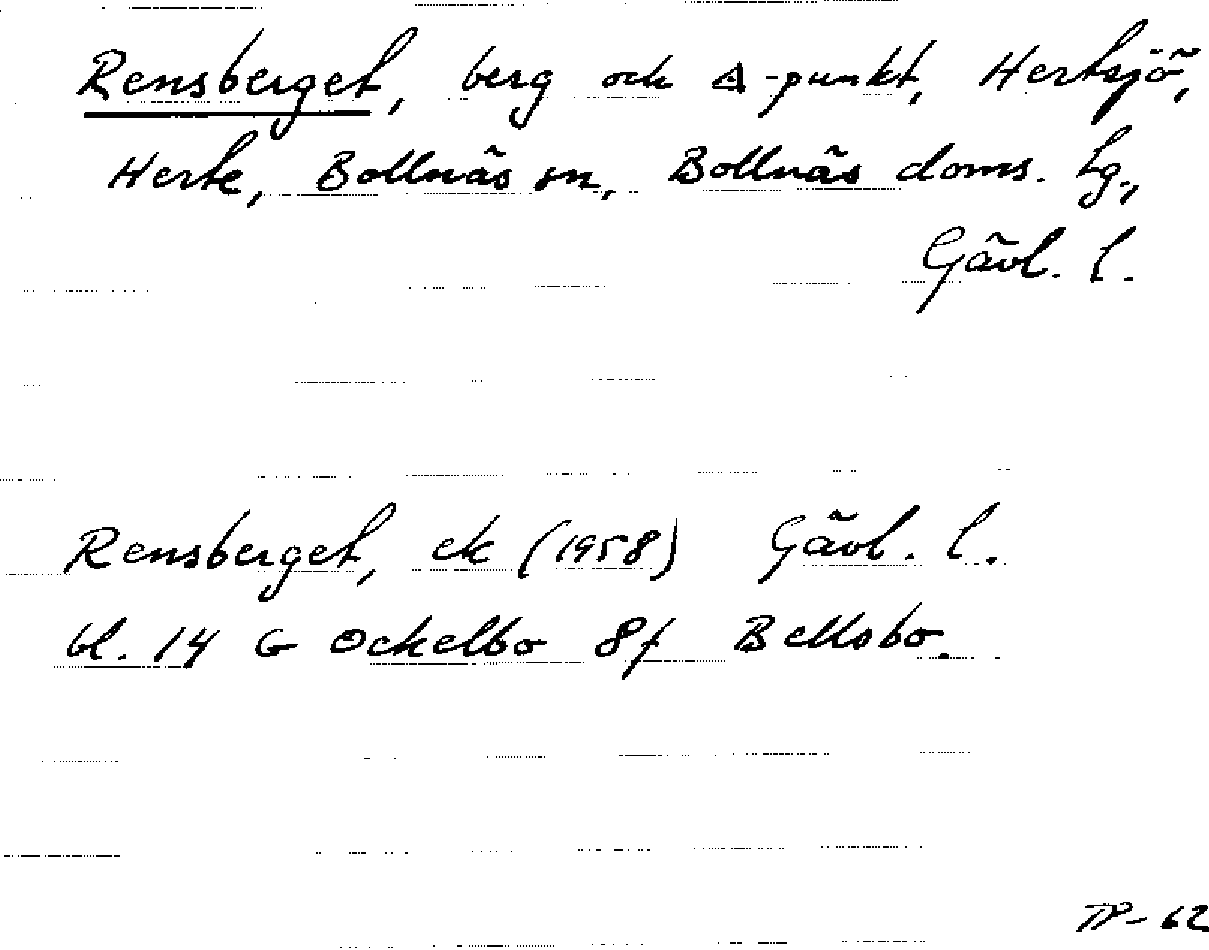 Rensberget, berg och △-punkt, Hertsjö,
Herte, Bollnäs sn, Bollnäs doms. lg.,
Gävl. l.
Rensberget, ek (1958) Gävl. l.
bl. 14 G Ockelbo 8f Bellsbo.
TP-62